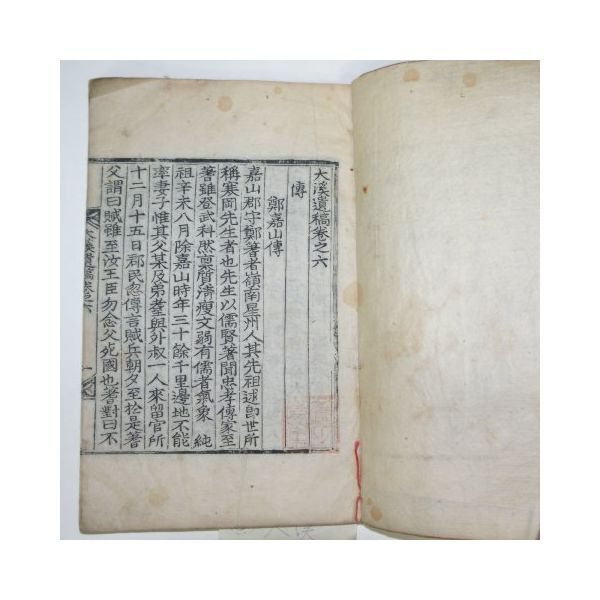 大溪遺稿卷之六
傳
鄭嘉山傳
嘉山郡守鄭著者嶺南星州人其先祖逑卽世所
稱寒岡先生者也先生以儒賢著聞忠孝傳家至
著雖登武科然禀質淸瘦文弱有儒者氣象 純
祖辛未八月除嘉山時年三十餘千里邊地不能
率妻子惟其父某及弟耋與外叔一人來留官所
十二月十五日郡民忽傳言賊兵朝夕至於是著
父謂曰賊雖至汝王臣勿念父死國也著對曰不
大溪遺稿卷之六
一